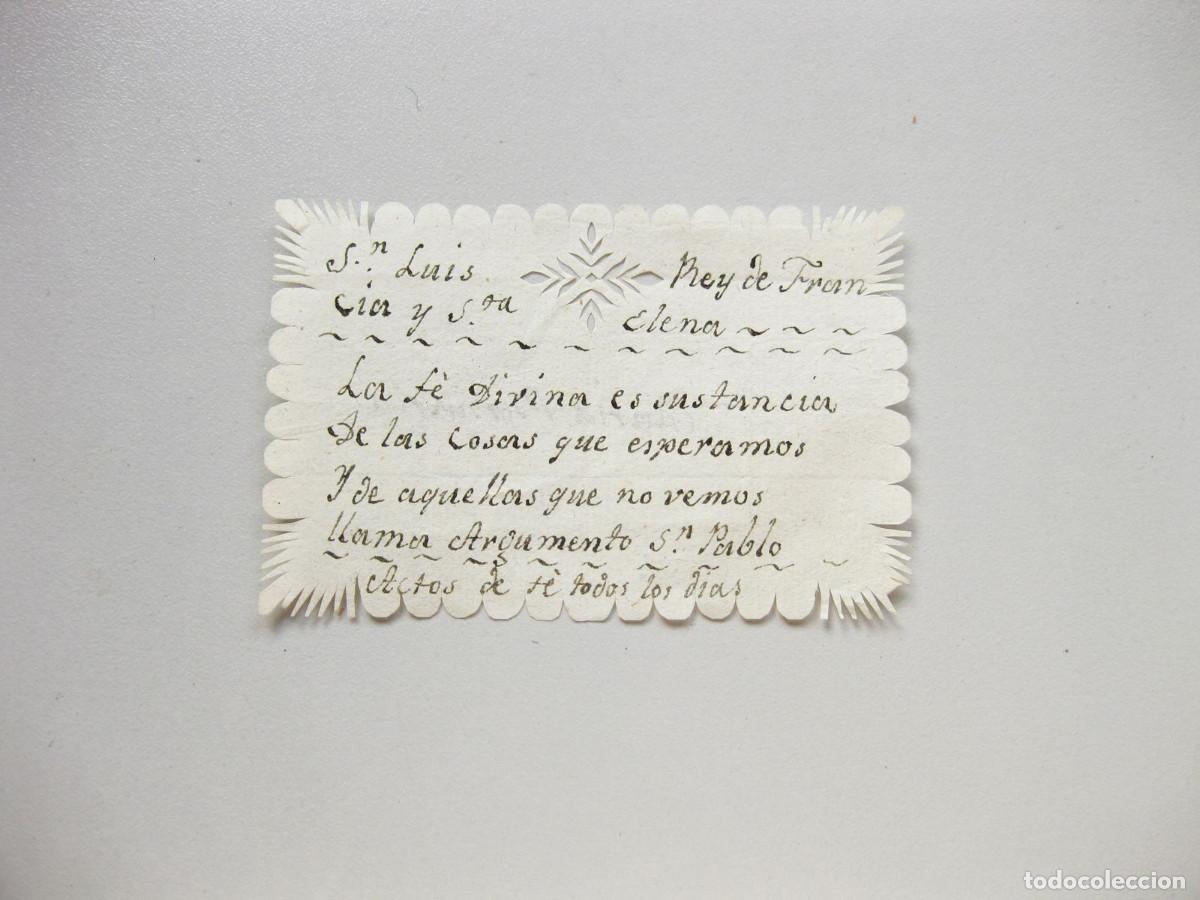 S.ⁿ Luis Rey de Fran
cia y S.ta Elena ~ ~ ~ ~
~ ~ ~ ~ ~ ~ ~ ~ ~ ~ ~
La fè Divina es sustancia
De las cosas que esperamos
Y de aquellas que no vemos
llama Argumento S.ⁿ Pablo
~ ~ ~ ~ ~ ~ ~ ~ ~ ~ ~
Actos de fè todos los dias
todocoleccion